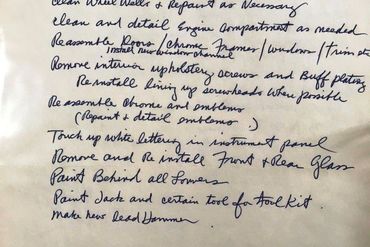 Clean Wheel Wells & Repaint as Necessary
Clean and detail Engine Compartment as needed
Reassemble Doors / Chrome Frames / window / Trim
Install new window channel
Remove interior upholstery screws and Buff plating
Reinstall lining up screwheads where possible
Reassemble Chrome and emblems
(Repaint & detail emblems.)
Touch up white lettering in instrument panel
Remove and Reinstall Front & Rear Glass
Paint Behind all Louvers
Paint Jack and certain tool for Tool Kit.
Make new Lead Hammer